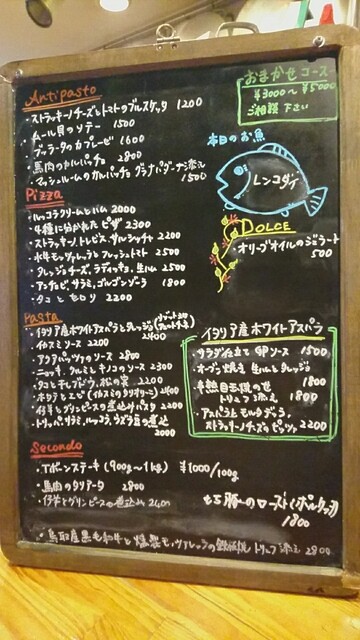 Antipasto
・ストラッキーノチーズとトマトのブルスケッタ 1200
・ムール貝のソテー 1500
・ブッラータのカプレーゼ 1600
・馬肉のカルパッチョ 2800
・マッシュルームのカルパッチョ グラナパダーナ添え 1500
Pizza
・ルッコラクリームとハム 2000
・4種に分かれたピザ 2300
・ストラッキーノ、トレビス、サルシッチャ 2200
・水牛モッツァレラとフレッシュトマト 2500
・タレッジョチーズ、ラディッキョ、生ハム 2500
・アンチョビ、サラミ、ゴルゴンゾーラ 1800
・タコと 2200
Pasta
・イタリア産ホワイトアスパラとタレッジョ 2400
・イカスミソース 2200
・アクアパッツァのソース 2800
・ニョッキ、クルミとキノコのソース 2300
・タコと 2200
・ホタテとエビ(イカスミのタリオリーニ) 2400
・仔羊とグリンピースの煮込みパスタ 2200
・トリッパ、サラミ、ルッコラ、ウズラ豆の煮込 2000
Secondo
・Tボーンステーキ(900g〜1kg) ¥1000/100g
・馬肉のタリアータ 2800
・仔羊とグリンピースの煮込み 2400
・鳥取産黒毛和牛と燻製モッツァレラの鉄板焼 トリュフ添え 2800
おまかせコース
¥3000〜¥5000
ご相談下さい
本日のお魚
レンコダイ
DOLCE
・オリーブオイルのジェラート
500
イタリア産ホワイトアスパラ
・サラダ仕立て 卵ソース 1500
・オーブン焼き 生ハムとタレッジョ 1800
・半熟目玉焼のせ
トリュフ添え 1800
・アスパラとモルタデッラ、
ストラッキーノチーズのピッツァ 2200
もち豚のロースト(ポルケッタ)
1800